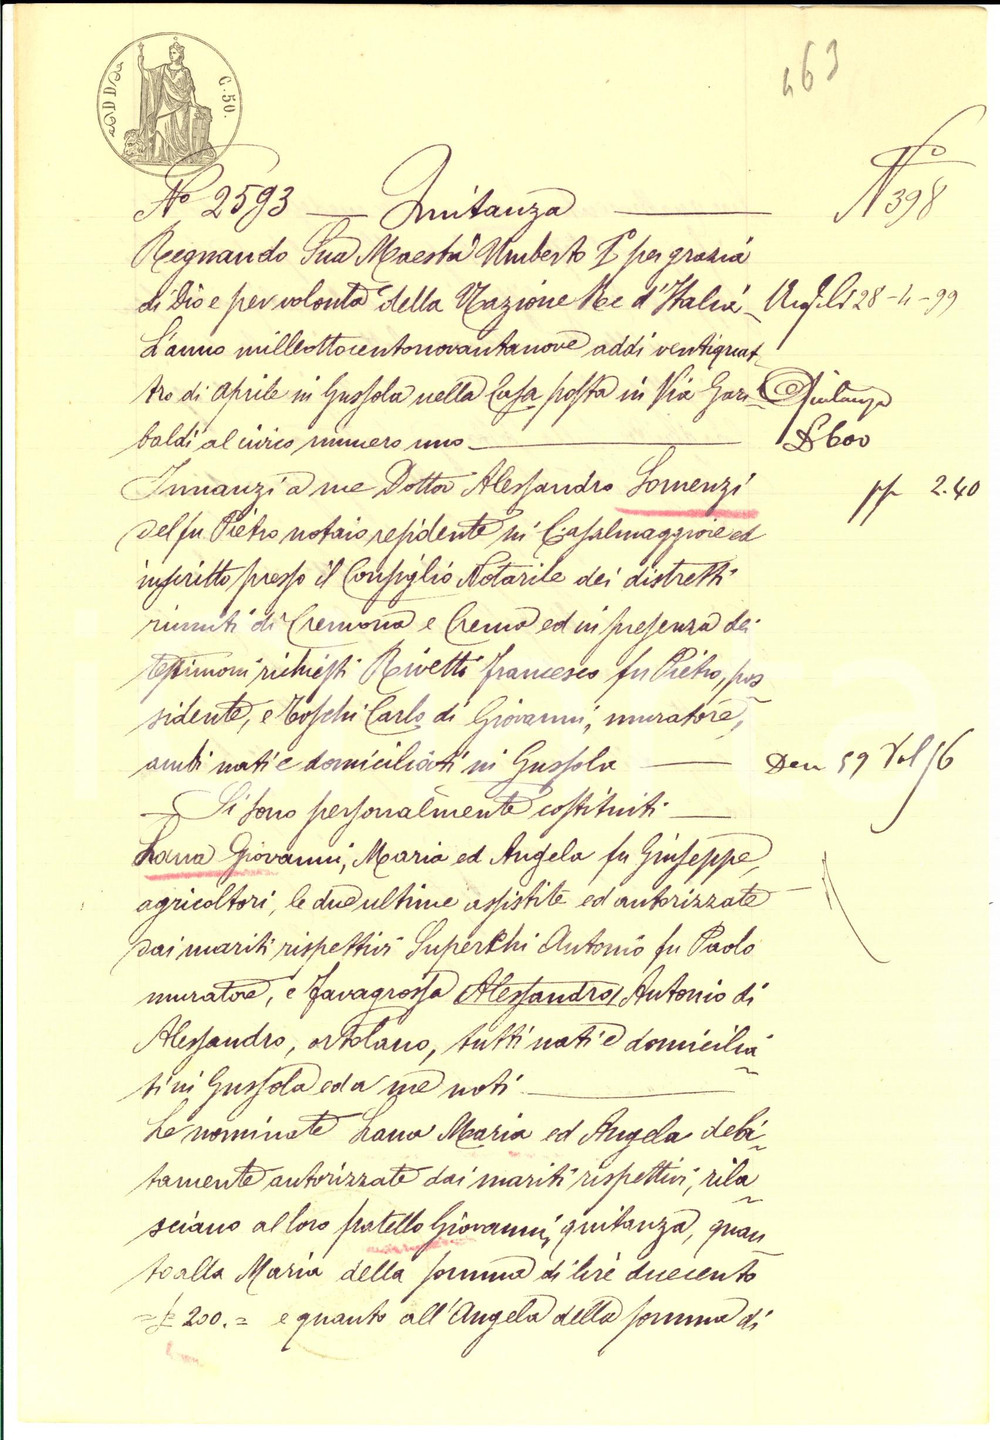 463
C. 50.
No 2593 — Quitanza —
No 398
Regnando Sua Maestà Umberto I° per grazia
di Dio e per volontà della Nazione Re d'Italia
28-4-99
L'anno milleottocentonovantanove addì ventiquat-
tro di Aprile in Gussola nella Casa posta in Via Gari-
Quitanza
baldi al civico numero uno —
£ 600
Innanzi a me Dottor Alessandro Lomenzi
2.40
del fu Pietro notaio residente in Casalmaggiore ed
inscritto presso il Consiglio Notarile dei distretti
riuniti di Cremona e Crema ed in presenza dei
testimoni richiesti Rivetti Francesco fu Pietro, pos-
sidente, e Toschi Carlo di Giovanni, muratore,
ambi nati e domiciliati in Gussola —
Den 59 Vol 56
— Si sono personalmente costituiti —
Lana Giovanni, Maria ed Angela fu Giuseppe,
agricoltori, le due ultime assistite ed autorizzate
dai mariti rispettivi Superchi Antonio fu Paolo
muratore, e Favagrossa (Alessandro) Antonio di
Alessandro, ortolano, tutti nati e domicilia-
ti in Gussola ed a me noti —
Le nominate Lana Maria ed Angela debi-
tamente autorizzate dai mariti rispettivi, rila-
sciano al loro fratello Giovanni, quitanza, quan-
to alla Maria della somma di lire duecento
=£ 200.= e quanto all'Angela della somma di